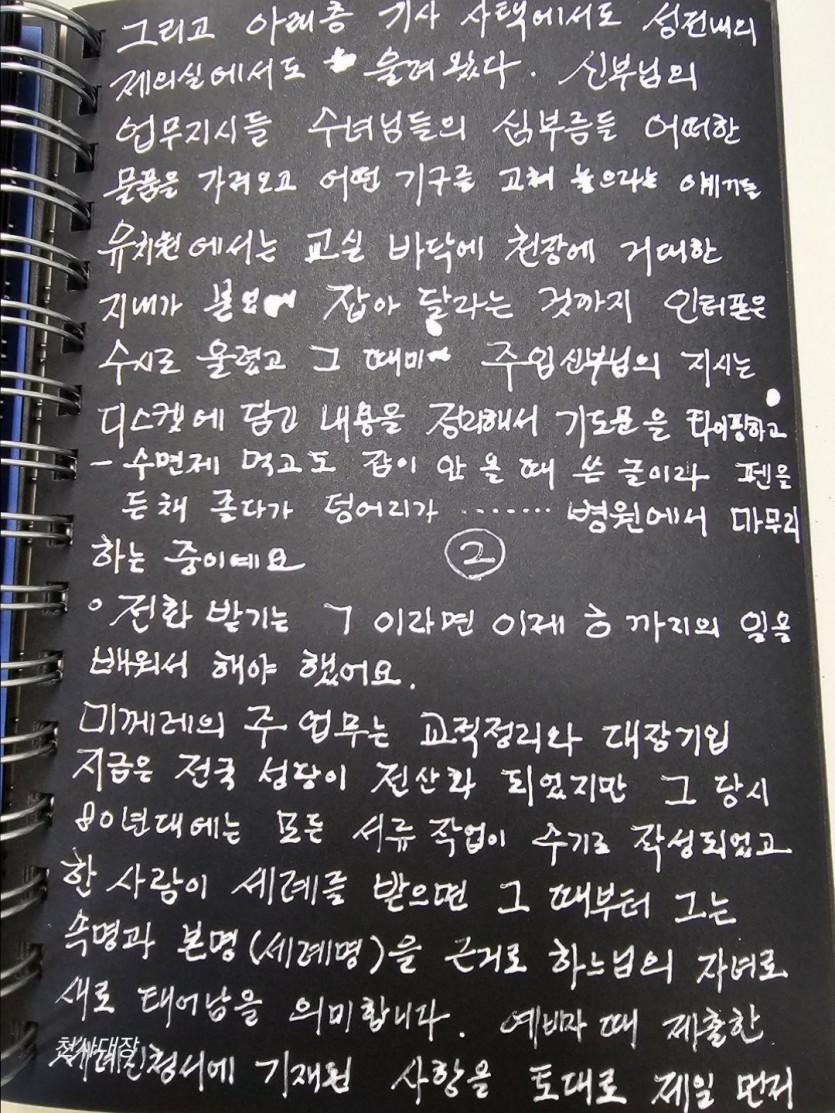 그리고 아래층 기사 사택에서도 성전내의
제의실에서도 울려 왔다. 신부님의
업무지시들 수녀님들의 심부름들 어떠한
물품을 가져오고 어떤 기구를 고쳐 놓으라는 얘기들
유치원에서는 교실 바닥에 천장에 거대한
지네가 잡아 달라는 것까지 인터폰은
수시로 울렸고 그 때마다 주임신부님의 지시는
디스켓에 담긴 내용을 정리해서 기도문을 타이핑하고
- 수면제 먹고도 잠이 안 올 때 쓴 글이라 펜을
든채 졸다가 덩어리가 ........ 병원에서 마무리
하는 중이예요 ②
° 전화 받기는 ㄱ 이라면 이제 ㅎ 까지의 일을
배워서 해야 했어요.
미께레의 주 업무는 교적정리와 대장기입
지금은 전국 성당이 전산화 되었지만 그 당시
80년대에는 모든 서류 작업이 수기로 작성되었고
한 사람이 세례를 받으면 그 때부터 그는
속명과 본명(세례명)을 근거로 하느님의 자녀로
새로 태어남을 의미합니다. 예비자 때 제출한
세례신청서에 기재된 사항을 토대로 제일 먼저